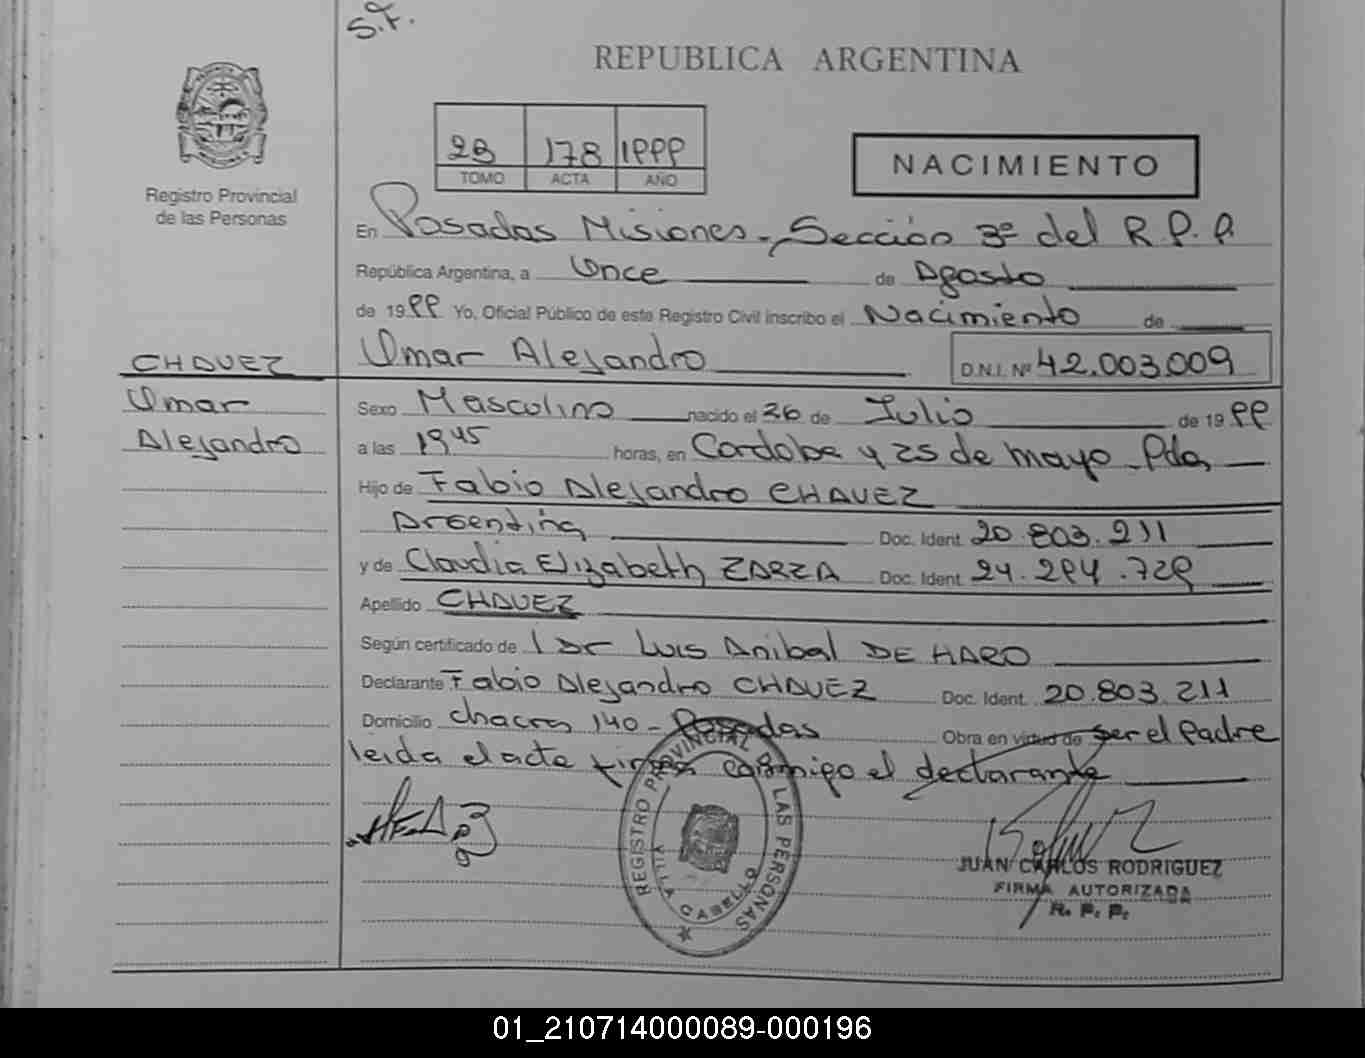 S.F.
REPUBLICA ARGENTINA
Registro Provincial
de las Personas
2B 178 1999
TOMO ACTA AÑO
NACIMIENTO
En Posadas Misiones - Sección 3º del R.P.P.
República Argentina, a Once de Agosto
de 1999 Yo, Oficial Público de este Registro Civil inscribo el Nacimiento de
CHAVEZ Omar Alejandro D.N.I. Nº 42.003.009
Omar Sexo Masculino nacido el 26 de Julio de 1999
Alejandro a las 1945 horas, en Cordoba y 25 de mayo - Pdas
Hijo de Fabio Alejandro CHAVEZ
Argentina Doc. Ident. 20.803.211
y de Claudia Elizabeth ZARZA Doc. Ident. 24.294.729
Apellido CHAVEZ
Según certificado de l Dr Luis Anibal DE HARO
Declarante Fabio Alejandro CHAVEZ Doc. Ident. 20.803.211
Domicilio chacra 140 - Posadas Obra en virtud de ser el Padre
leida el acta firma conmigo el declarante
REGISTRO PROVINCIAL LAS PERSONAS
CABELLO
JUAN CARLOS RODRIGUEZ
FIRMA AUTORIZADA
R. P. P.
01_210714000089-000196